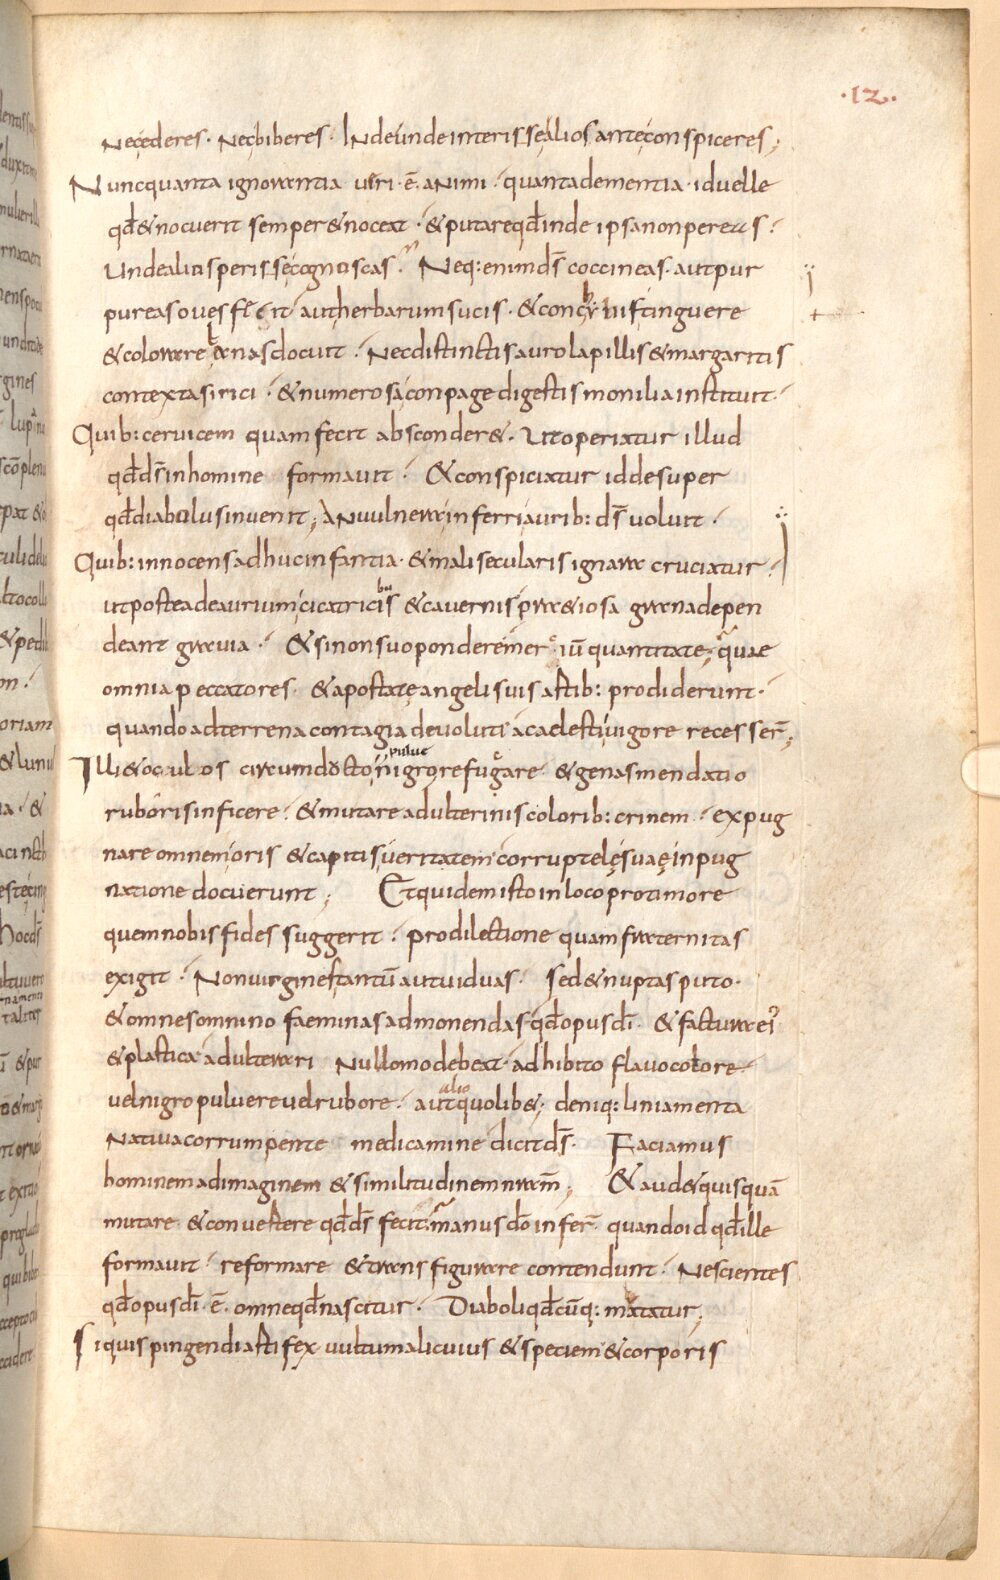 ·12·
Nec ederes · Nec biberes · INde unde interisse alios ante conspiceres;
Nunc quanta ignorantia ueri · ē · aNimi · quanta dementia · id uelle
qđ & nocuerit semper & noceat · & putare qđ inde ipsa non pereas ·
Unde alios perisse cognoscas · Neq: enim dš coccineas · aut pur
pureas oues fecit aut herbarum sucis · & conchyliis tinguere
& colorare lanas docuit · Nec distinctis auro lapillis & margaritis
contexta sirici · & numerosa conpage digestis monilia instituit ·
Quib: ceruicem quam fecit absconder& · Ut operiatur illud
qđ dš in homine formauit · & conspiciatur id desuper
qđ diabolus inuenit; AN uulnera inferri aurib: dš uoluit ·
Quib: innocens adhuc infantia · & mali secularis ignara cruciatur ·
ut postea de aurium cicatricibus & cauernis praetiosa grana depen
deant grauia · & si non suo pondere mercium quantitate; quae
omnia peccatores · & apostatę angeli suis astib: prodiderunt ·
quando ad terrena contagia deuoluti a caelesti uigore recesser̄;
Illi & oculos circumducto nigrore fugare · & genas mendatio
ruboris inficere · & mutare adulterinis colorib: crinem · expug
nare omnem oris & capitis ueritatem corruptelę suaę inpug
natione docuerunt; Et quidem isto in loco pro timore
quem nobis fides suggerit · pro dilectione quam fraternitas
exigit · Non uirgines tantū aut uiduas · sed & nuptas puto ·
& omnes omnino faeminas admonendas · qđ opus dī · & factura ei'
& plastica adulterari Nullo modo debeat · adhibito flauo colore
uel nigro puluere uel rubore · aut alio quolib& · deniq: liniamenta
Natiua corrumpente medicamine dicit dš · Faciamus
hominem ad imaginem & similitudinem nr̄am; & aud& quisquā
mutare & conuertere qđ dš fecit · manus dō infer̄ · quando id qđ ille
formauit · reformare & transfigurare contendunt · Nescientes
qđ opus dī · ē · omne qđ nascitur · Diaboli qđ cūq: mutatur;
Si quis pingendi artifex uultum alicuius & speciem & corporis